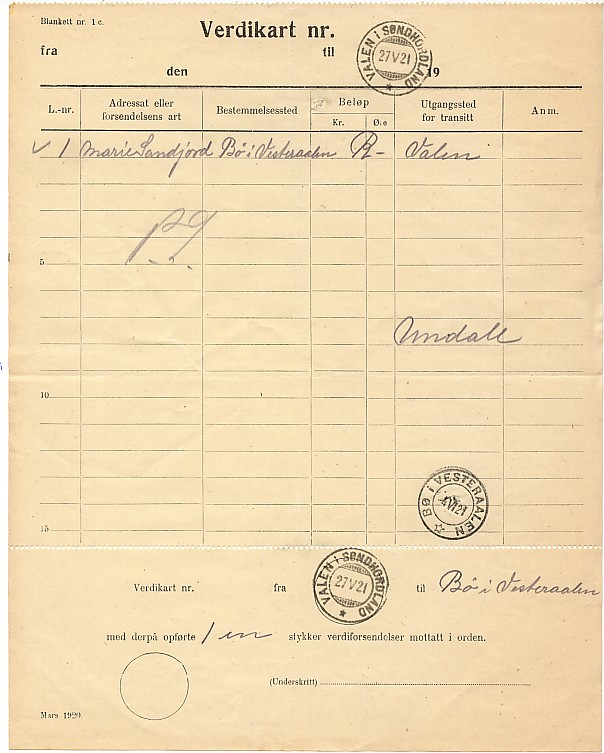 Blankett nr. 1 c.
Verdikart nr.
fra til
VALEN I SØNDHORDLAND 27 V 21
den 19
L.-nr. Adressat eller forsendelsens art Bestemmelsessted Beløp Kr. Øre Utgangssted for transitt Anm.
1 Marie Sandjord Bø i Vesteraalen R- Valen
5
10
BØ I VESTERAALEN -4 VI 21
15
VALEN I SØNDHORDLAND 27 V 21
Verdikart nr. fra til Bø i Vesteraalen
med derpå opførte 1 en stykker verdiforsendelser mottatt i orden.
(Underskrift)
Mars 1920.